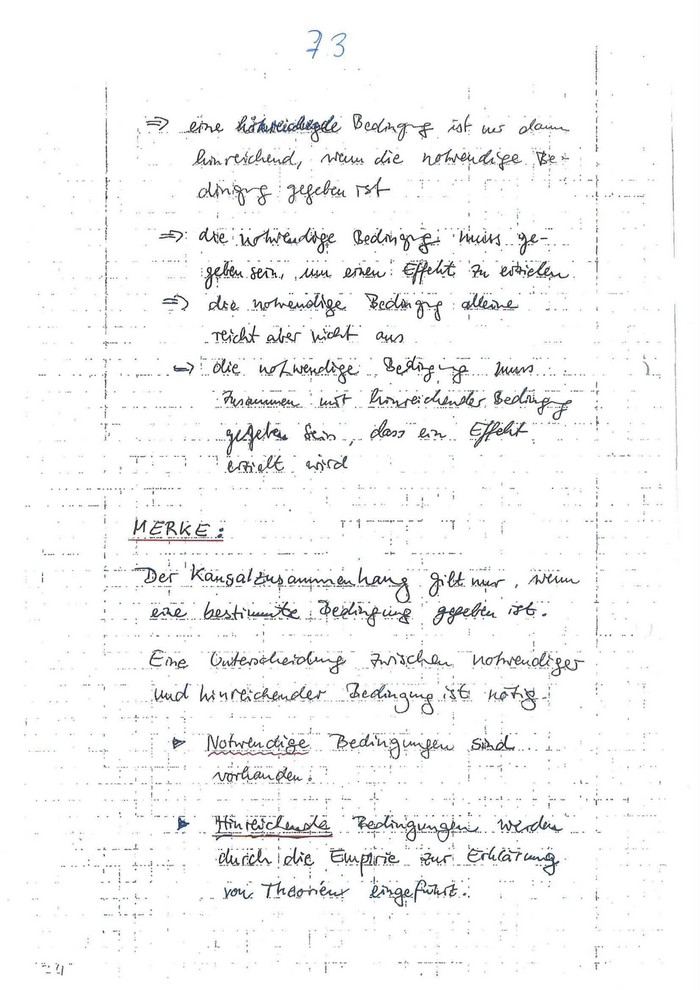 73
⇒ eine hinreichende Bedingung ist nur dann
hinreichend, wenn die notwendige Be-
dingung gegeben ist
⇒ die notwendige Bedingung muss ge-
geben sein, um einen Effekt zu erzielen
⇒ die notwendige Bedingung alleine
reicht aber nicht aus
⇒ die notwendige Bedingung muss
zusammen mit hinreichender Bedingung
gegeben sein, dass ein Effekt
erzielt wird
MERKE:
Der Kausalzusammenhang gilt nur, wenn
eine bestimmte Bedingung gegeben ist.
Eine Unterscheidung zwischen notwendiger
und hinreichender Bedingung ist nötig
▸ Notwendige Bedingungen sind
vorhanden.
▸ Hinreichende Bedingungen werden
durch die Empirie zur Erklärung
von Theorien eingeführt.